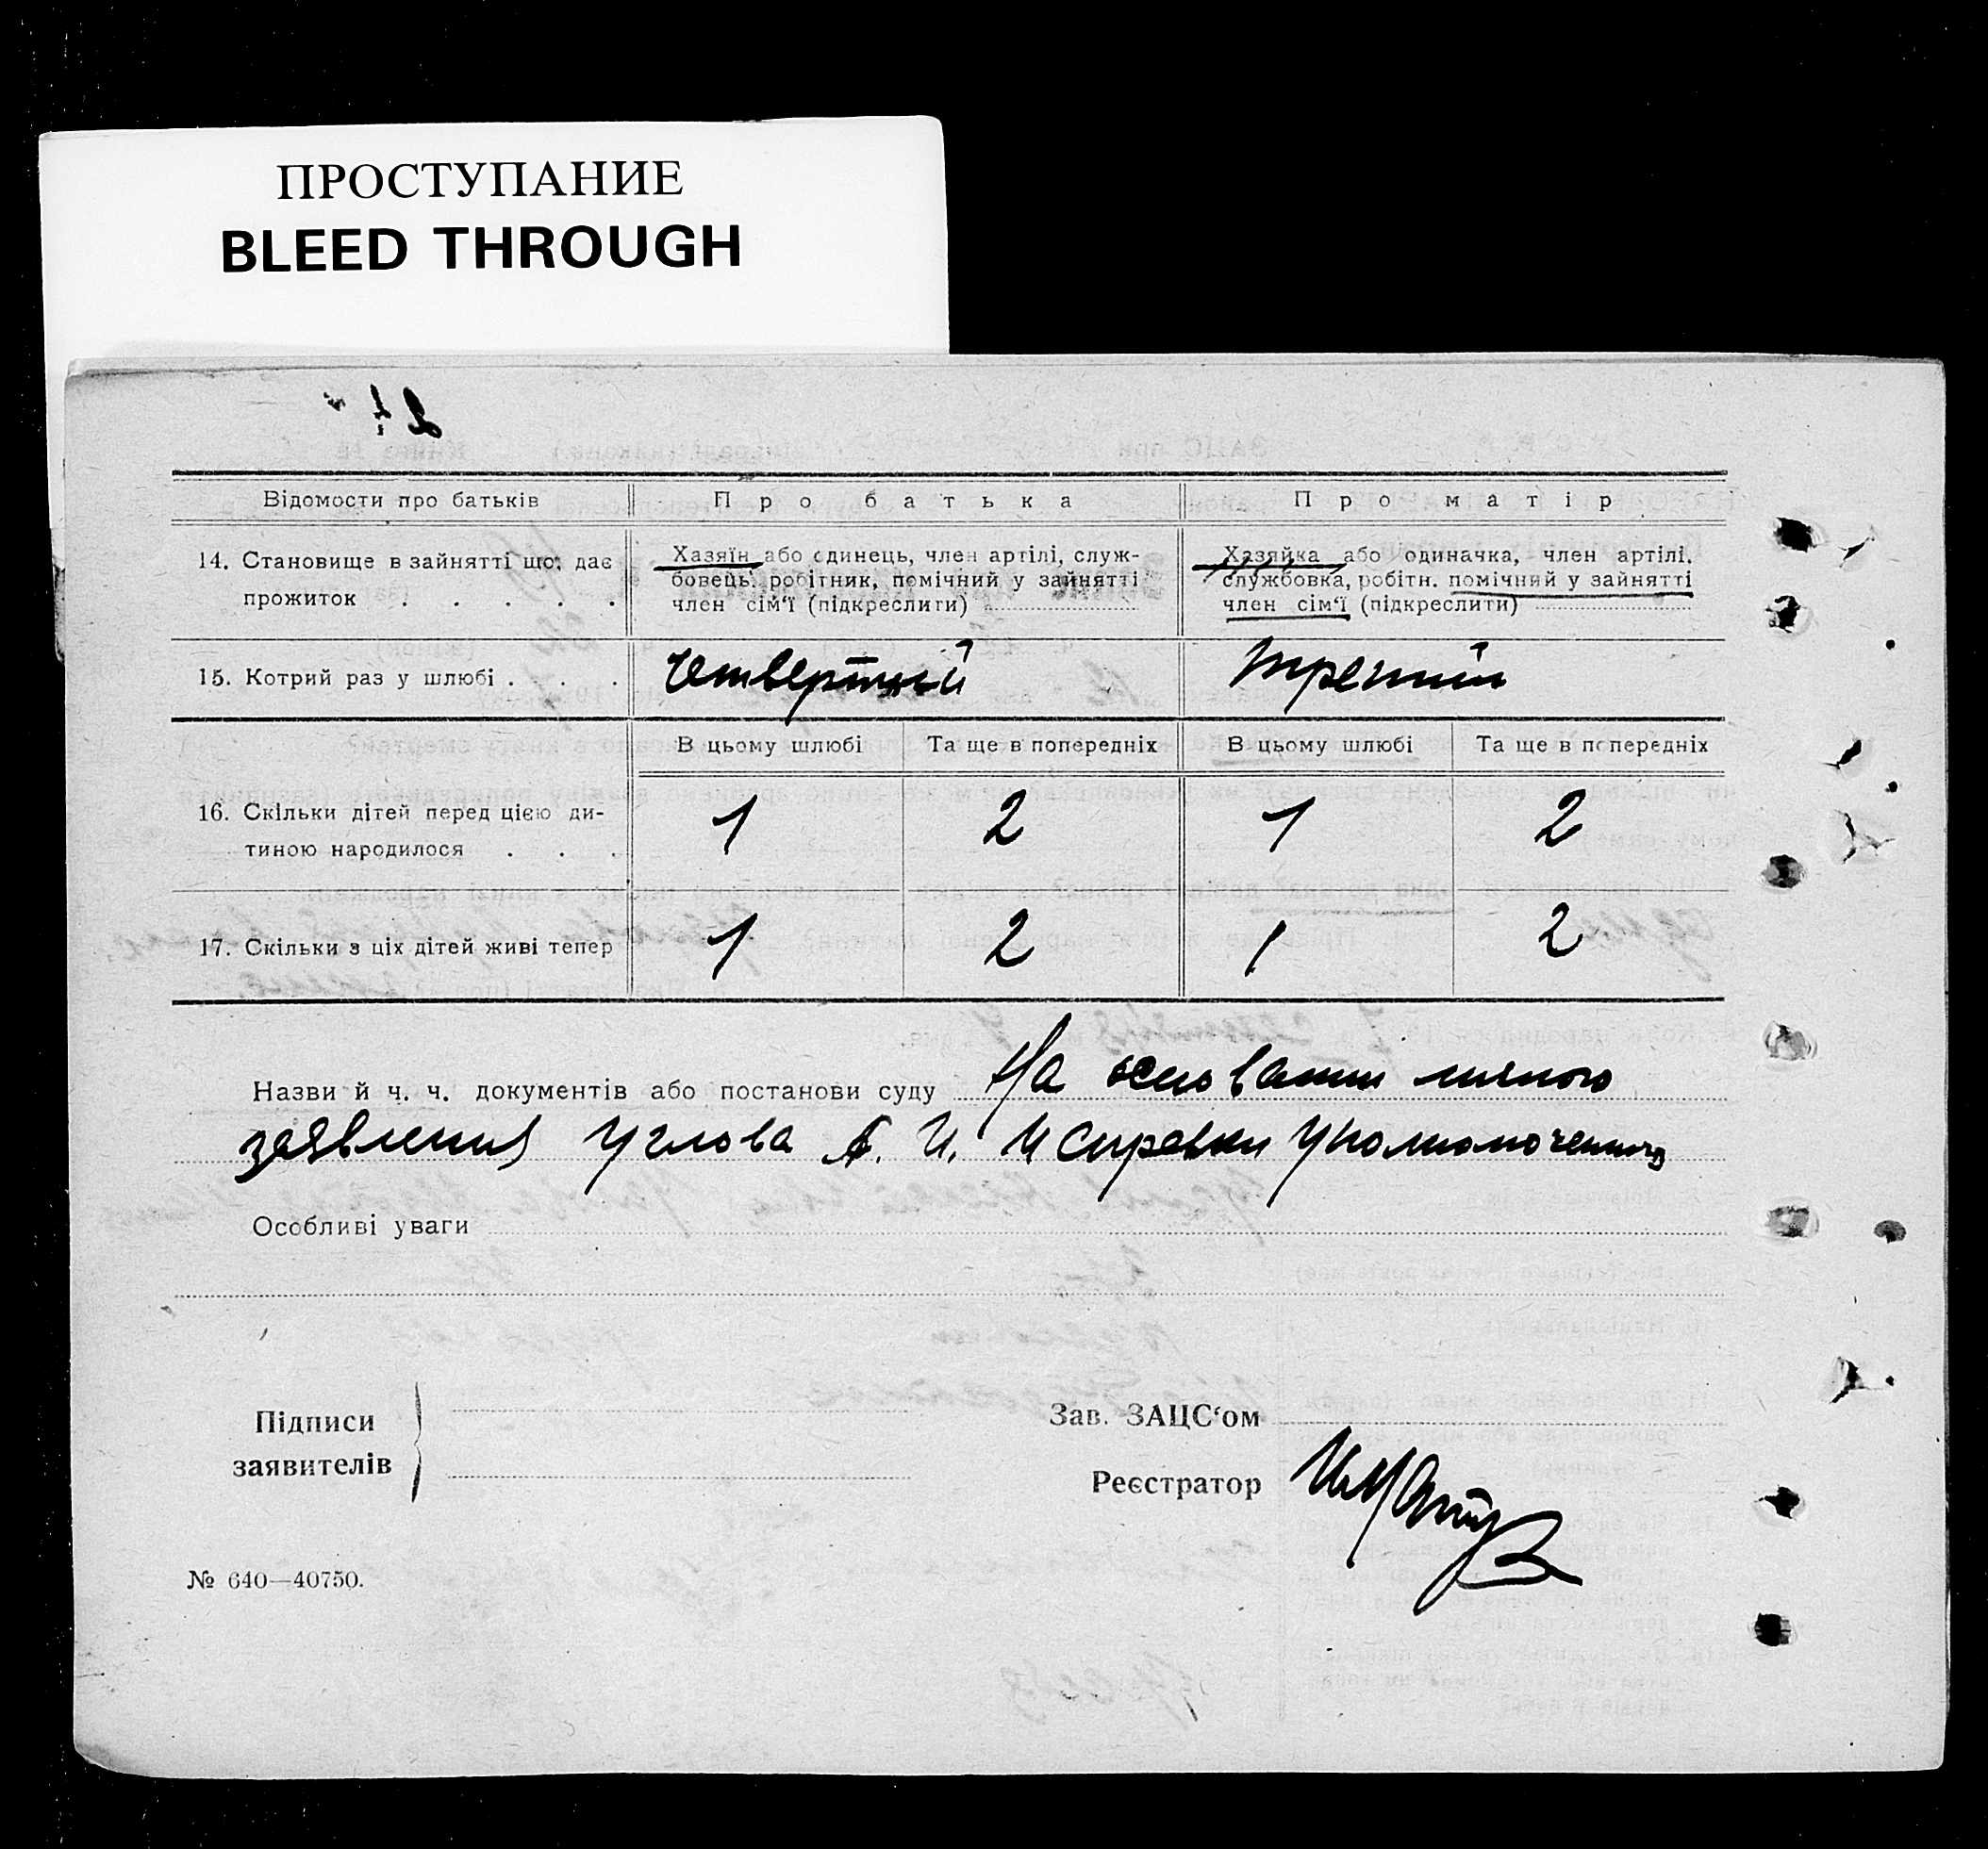 ПРОСТУПАНИЕ
BLEED THROUGH
Відомости про батьків Про батька Про матір
14. Становище в зайнятті що дає Хазяїн або єдинець, член артілі, служ- Хазяйка або одиначка, член артілі,
прожиток . . . . . бовець, робітник, помічний у зайнятті службовка, робітн. помічний у зайнятті
член сім'ї (підкреслити) член сім'ї (підкреслити)
15. Котрий раз у шлюбі . . . четвертый третий
В цьому шлюбі Та ще в попередніх В цьому шлюбі Та ще в попередніх
16. Скільки дітей перед цією ди- 1 2 1 2
тиною народилося . . .
17. Скільки з ціх дітей живі тепер 1 2 1 2
Назви й ч. ч. документів або постанови суду На основании личного
заявления Углова А. И. и справки Уполномоченного
Особливі уваги
Підписи
заявителів
Зав. ЗАЦС'ом
Реєстратор
№ 640—40750.